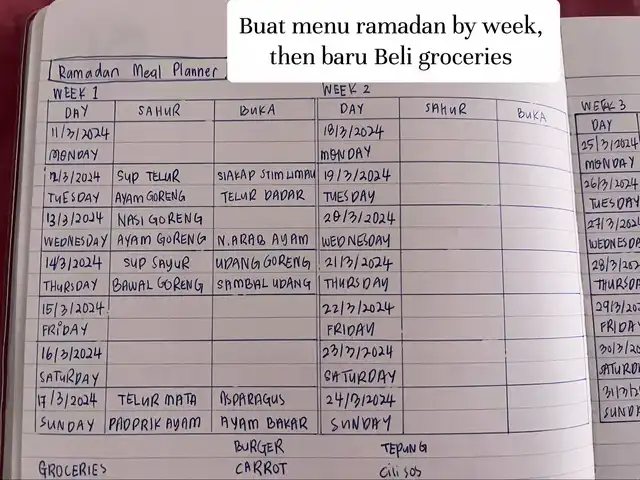 Buat menu ramadan by week,
then baru Beli groceries
Ramadan Meal Planner
WEEK 1
DAY SAHUR BUKA
11/3/2024
MONDAY
12/3/2024 SUP TELUR SIAKAP STIM LIMAU
TUESDAY AYAM GORENG TELUR DADAR
13/3/2024 NASI GORENG
WEDNESDAY AYAM GORENG N.ARAB AYAM
14/3/2024 SUP SAYUR UDANG GORENG
THURSDAY BAWAL GORENG SAMBAL UDANG
15/3/2024
FRIDAY
16/3/2024
SATURDAY
17/3/2024 TELUR MATA ASPARAGUS
SUNDAY PADPRIK AYAM AYAM BAKAR
WEEK 2
DAY SAHUR BUKA
18/3/2024
MONDAY
19/3/2024
TUESDAY
20/3/2024
WEDNESDAY
21/3/2024
THURSDAY
22/3/2024
FRIDAY
23/3/2024
SATURDAY
24/3/2024
SUNDAY
WEEK 3
DAY
25/3/2024
MONDAY
26/3/2024
TUESDAY
27/3/2024
WEDNESDA
28/3/202
THURSDA
29/3/202
FRIDA
30/3/20
SATURD
31/3/
SUN
BURGER TEPUNG
GROCERIES CARROT Cili sos